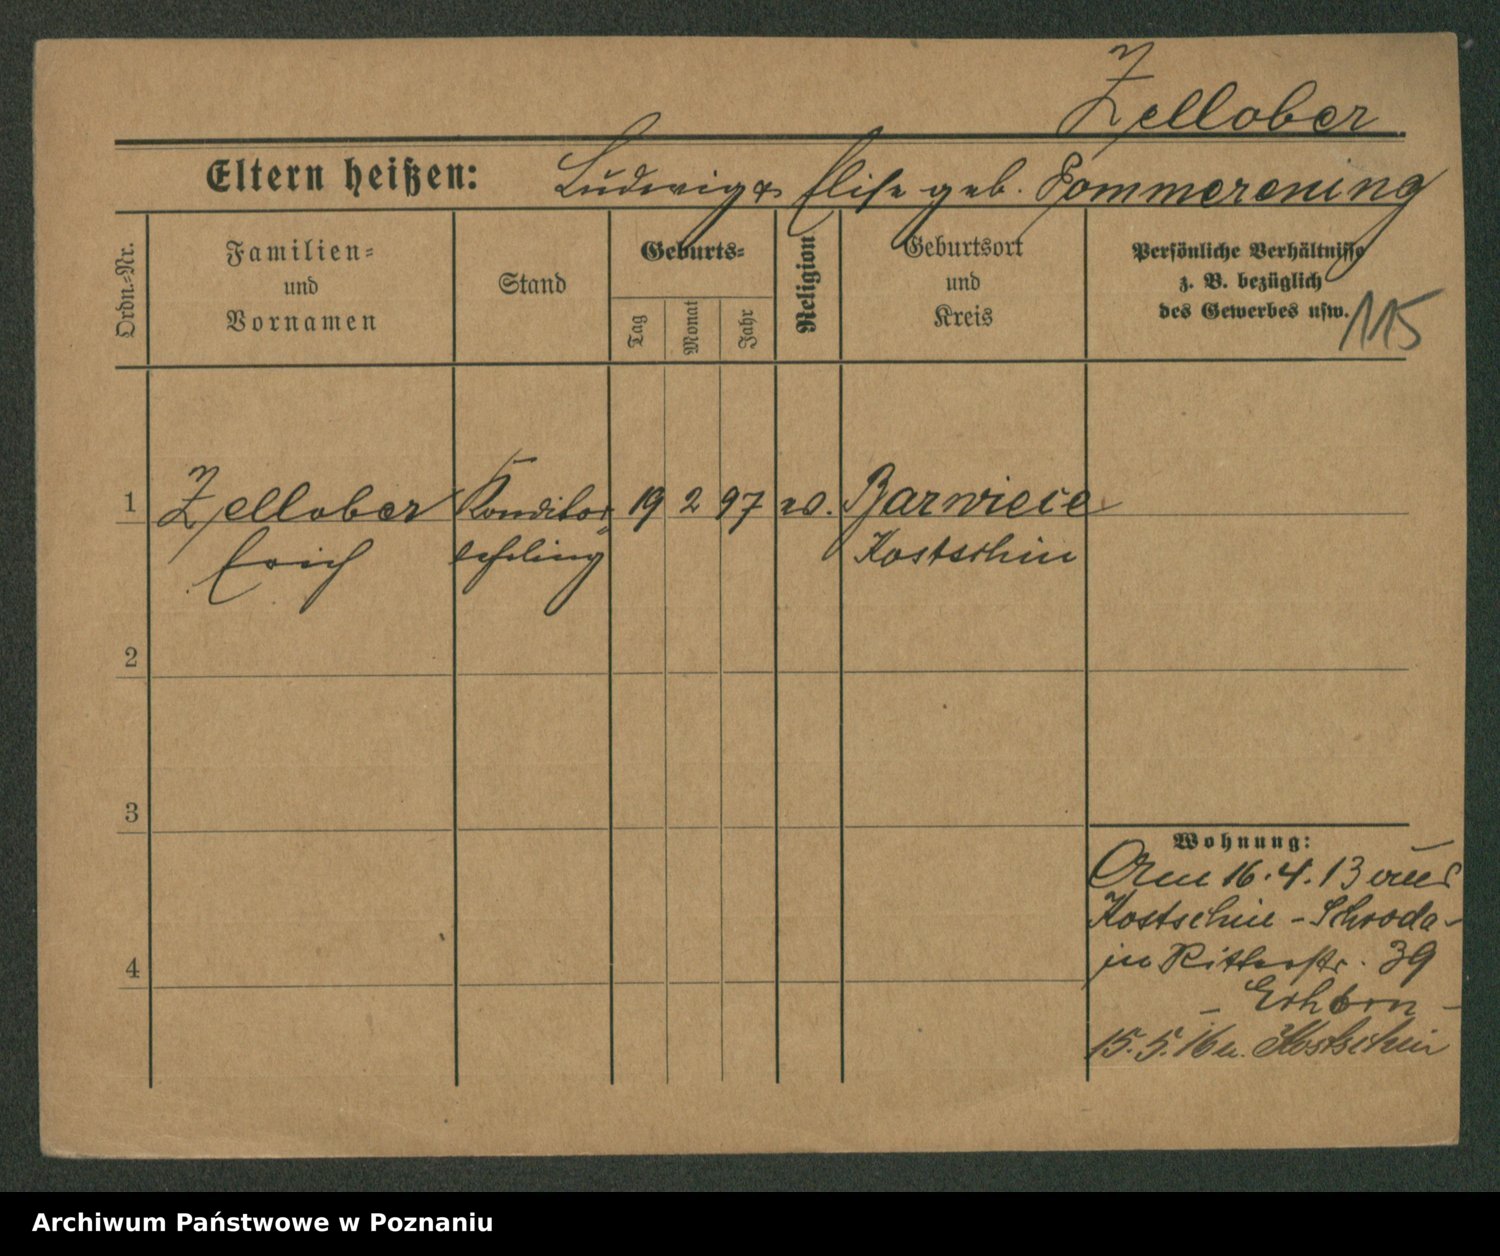 Zellober
Eltern heißen: Ludwig & Elise geb. Pommerening
Ordn.-Nr.
Familien-
und
Vornamen
Stand
Geburts-
Tag
Monat
Jahr
Religion
Geburtsort
und
Kreis
Persönliche Verhältnisse
z. B. bezüglich
des Gewerbes usw.
115
1 Zellober Konditor 19 2 97 Barwiece
Erich lehrling Kostschin
2
3
4
Wohnung:
Am 16.4.13 aus
Kostschin - Schroda -
in Ritterstr. 39
- Erhorn -
15.5.16 n. Kostschin
Archiwum Państwowe w Poznaniu